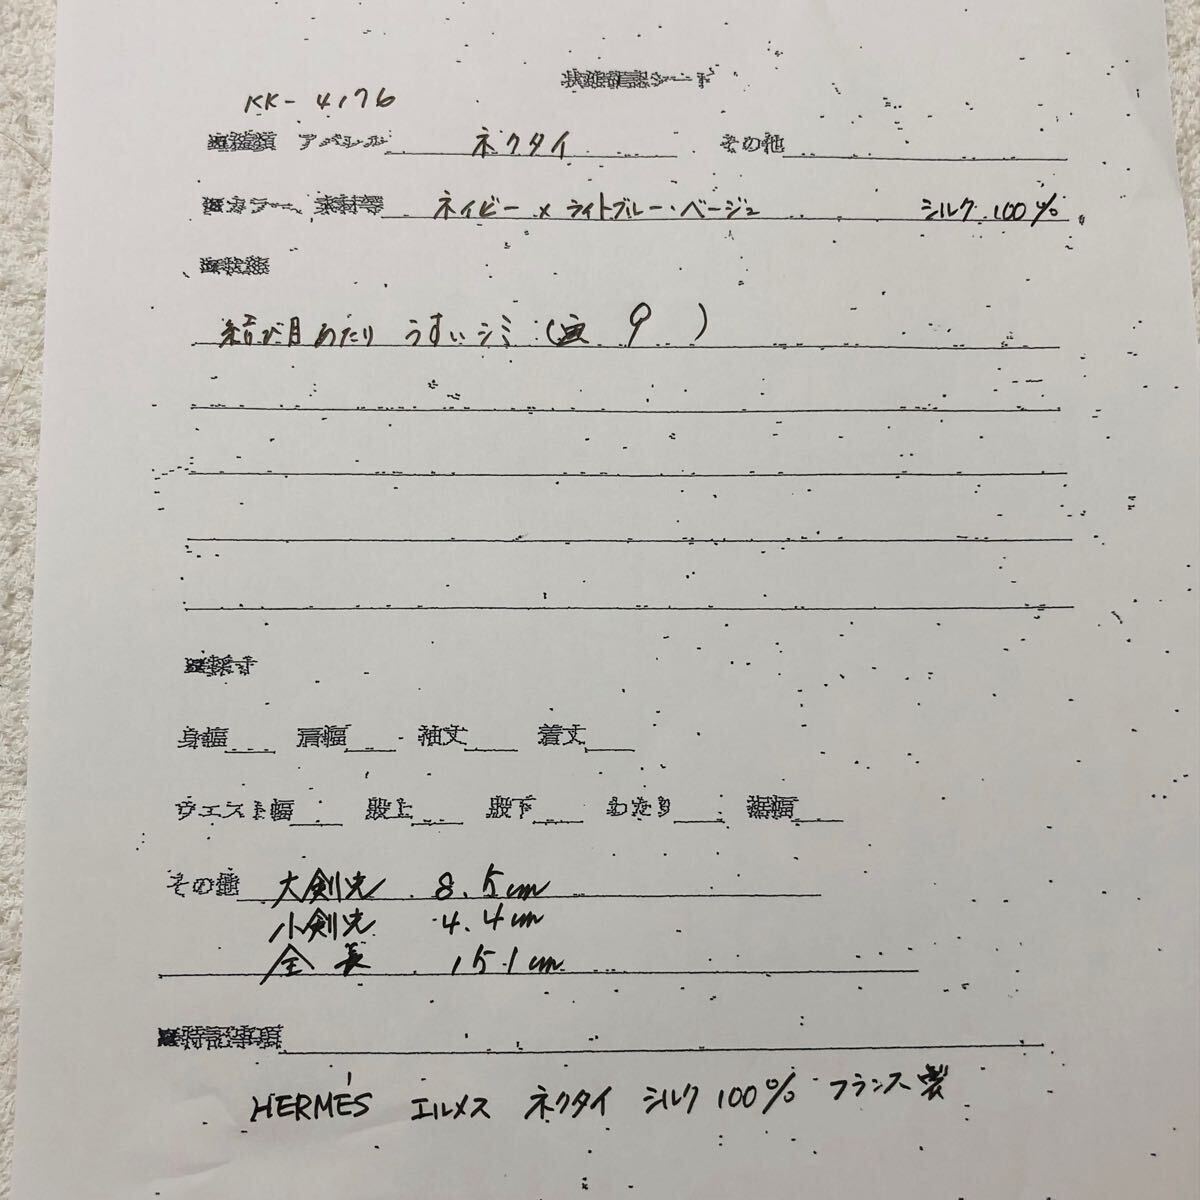 状態確認シート
KK-4176
■種類 アパレル ネクタイ その他
■カラー、素材等 ネイビー×ライトブルー・ベージュ シルク 100%
■状態
結び目あたり うすいシミ( 9 )
■採寸
身幅 肩幅 袖丈 着丈
ウエスト幅 股上 股下 わたり 裾幅
その他 大剣先 8.5cm
小剣先 4.4cm
全長 151cm
■特記事項
HERMÈS エルメス ネクタイ シルク 100% フランス製